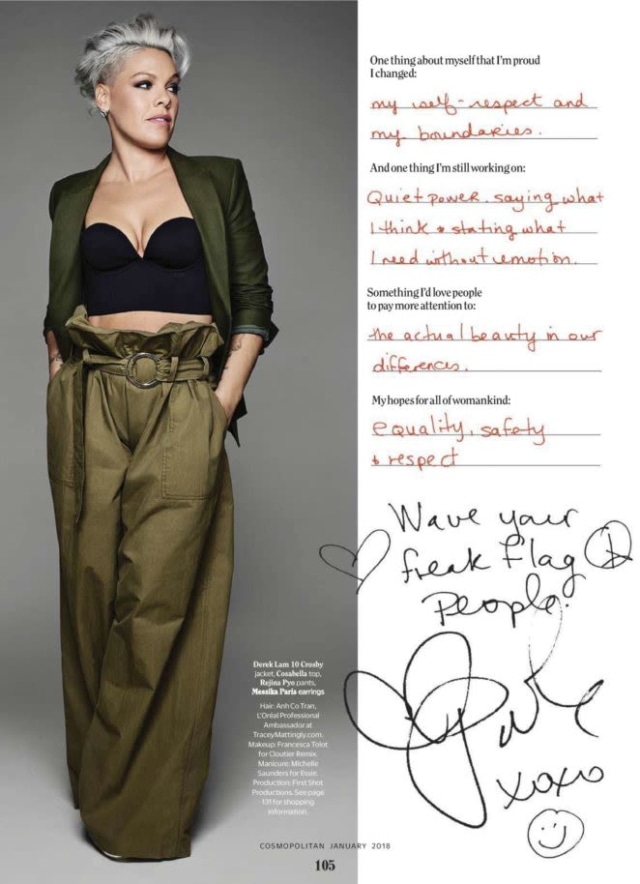 One thing about myself that I'm proud
I changed:
my self-respect and
my boundaries.
And one thing I'm still working on:
Quiet power. saying what
I think & stating what
I need without emotion.
Something I'd love people
to pay more attention to:
the actual beauty in our
differences.
My hopes for all of womankind:
equality, safety
& respect
Wave your
freak flag
People.
P!nk
xoxo
Derek Lam 10 Crosby
jacket, Cosabella top,
Rejina Pyo pants,
Messika Paris earrings
Hair: Anh Co Tran,
L'Oréal Professional
Ambassador at
TraceyMattingly.com.
Makeup: Francesca Tolot
for Cloutier Remix.
Manicure: Michelle
Saunders for Essie.
Production: First Shot
Productions. See page
131 for shopping
information.
COSMOPOLITAN JANUARY 2018
105